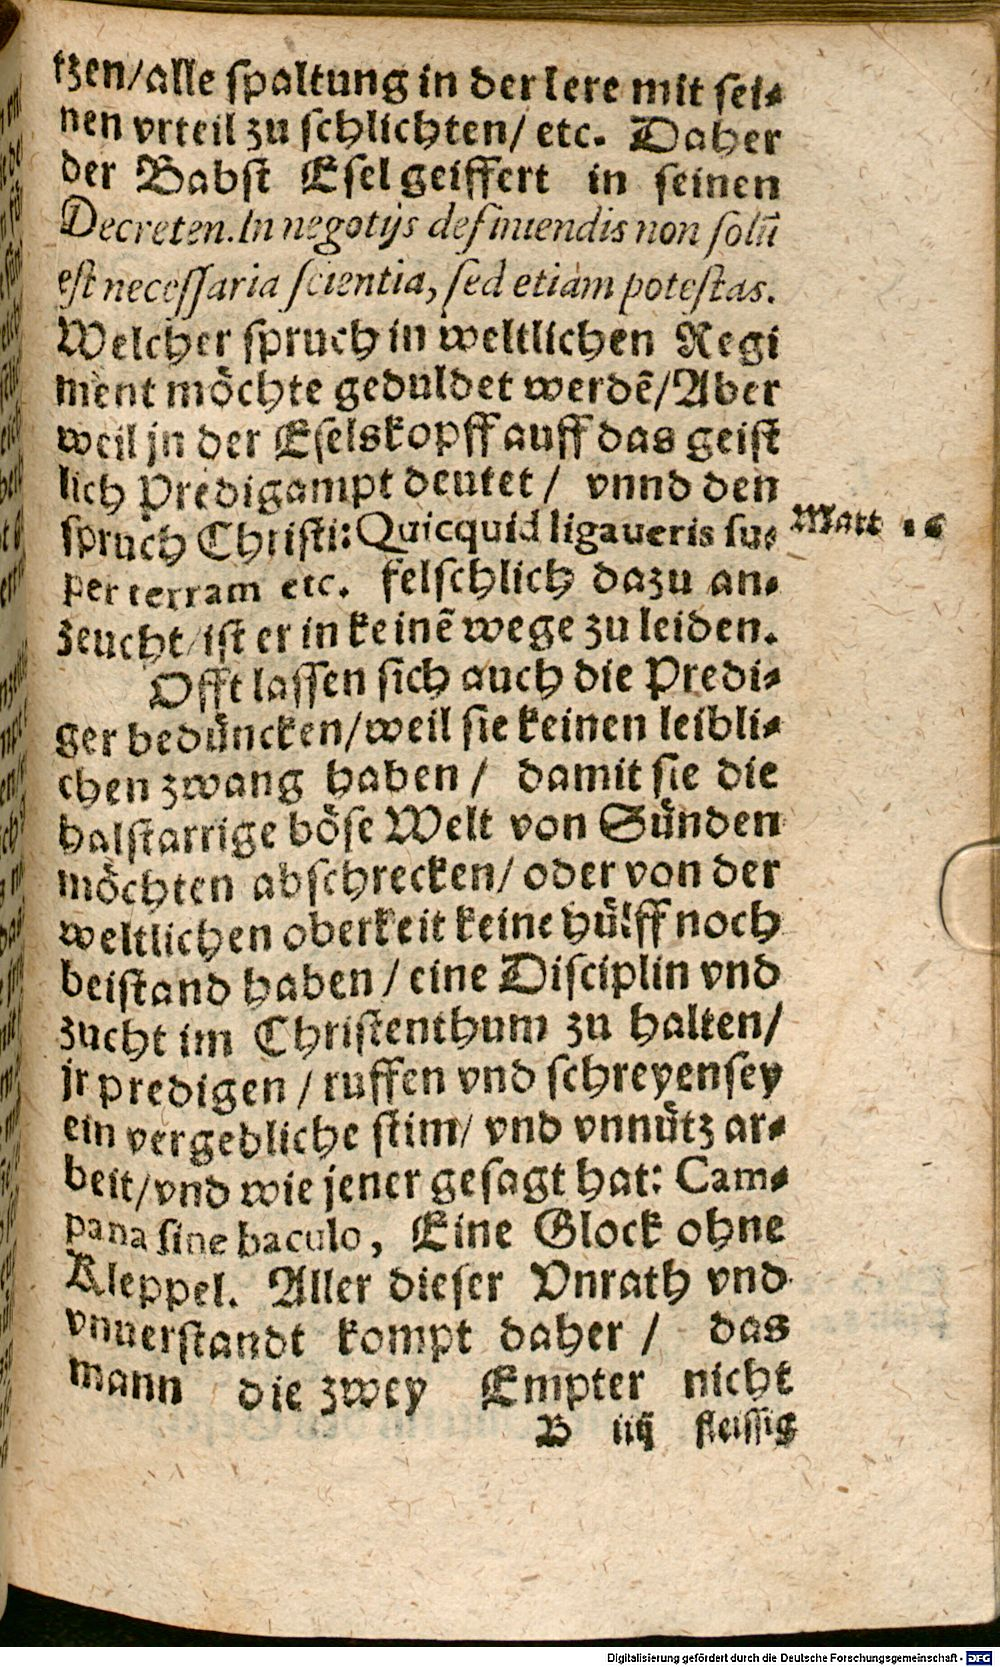 tzen/alle spaltung in der lere mit sei⸗
nen vrteil zu schlichten/ etc. Daher
der Babst Esel geiffert in seinen
Decreten. In negotijs definiendis non solū
est necessaria scientia, sed etiam potestas.
Welcher spruch in weltlichen Regi
ment möchte geduldet werdē/Aber
weil jn der Eselskopff auff das geist
lich Predigampt deutet/ vnnd den
spruch Christi: Quicquid ligaveris su⸗
per terram etc. felschlich dazu an⸗
zeucht/ist er in keinē wege zu leiden.
Offt lassen sich auch die Predi⸗
ger bedüncken/weil sie keinen leibli⸗
chen zwang haben/ damit sie die
halstarrige böse Welt von Sünden
möchten abschrecken/ oder von der
weltlichen oberkeit keine hülff noch
beistand haben/ eine Disciplin vnd
zucht im Christenthum zu halten/
jr predigen/ ruffen vnd schreyen sey
ein vergebliche stim/ vnd vnnütz ar⸗
beit/vnd wie jener gesagt hat: Cam⸗
pana sine baculo, Eine Glock ohne
Kleppel. Aller dieser Vnrath vnd
vnuerstandt kompt daher/ das
mann die zwey Empter nicht
B iiij fleissig
Matt 16
Digitalisierung gefördert durch die Deutsche Forschungsgemeinschaft - DFG